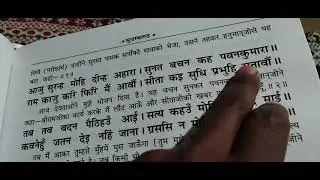 * सुन्दरकाण्ड *
लिये (परीक्षार्थ) उन्होंने सुरसा नामक सर्पोंकी माताको भेजा, उसने आकर हनुमान्‌जीसे यह
बात कही—॥ १॥
आजु सुरन्ह मोहि दीन्ह अहारा। सुनत बचन कह पवनकुमारा॥
राम काजु करि फिरि मैं आवौं। सीता कइ सुधि प्रभुहि सुनावौं॥
आज देवताओंने मुझे भोजन दिया है। यह वचन सुनकर पवनकुमार
कहा—श्रीरामजीका कार्य करके मैं लौट आऊँ और सीताजीकी खबर ॥ २॥
तब तव बदन पैठिहउँ आई। सत्य कहउँ मोहि माई॥
कवनेहुँ जतन देइ नहिं जाना। ग्रससि न मोहि
तब मैं आकर तुम्हारे मुँहमें घुस जाऊँगा